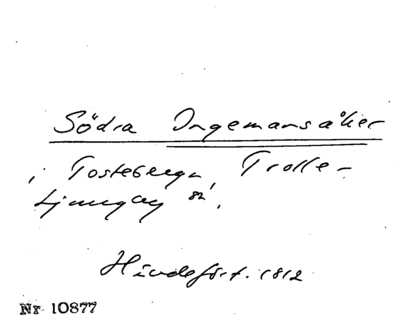 Södra Ingemansåker
i Tosteberga, Trolle-
Ljungby sn.
Häradsört. 1812
Nr 10877